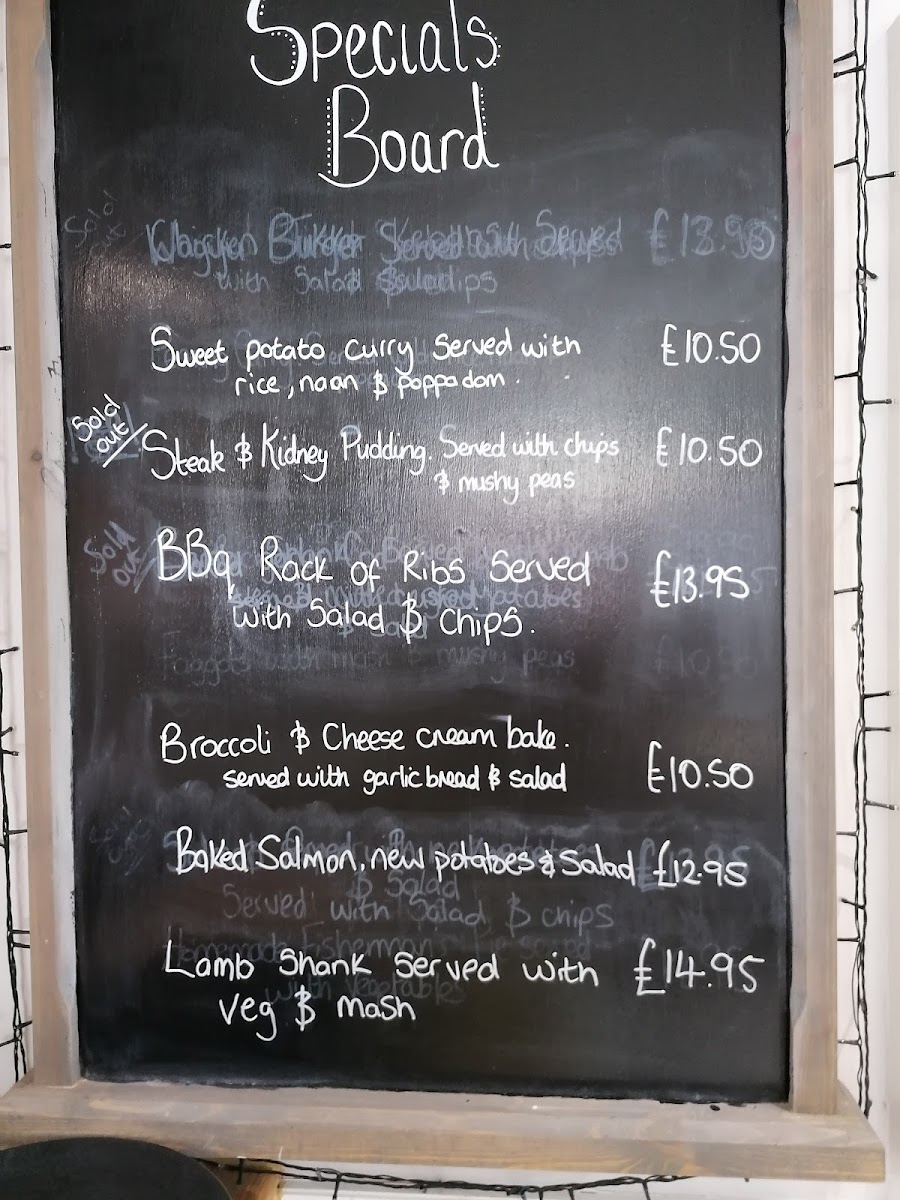 Specials
Board
Sold
out
Burger Served
£13.95
with Salad
Sweet potato curry Served with £10.50
rice, naan & poppadom.
Sold
out
Steak & Kidney Pudding. Served with chips £10.50
& mushy peas
Sold
out
BBq Rack of Ribs Served £13.95
with Salad & Chips.
Faggots with mash & mushy peas £10.50
Broccoli & Cheese cream bake.
served with garlic bread & salad £10.50
Baked Salmon, new potatoes & Salad £12.95
& Salad
Served with Salad & chips
Lamb Shank Served with £14.95
with vegetables
Veg & mash